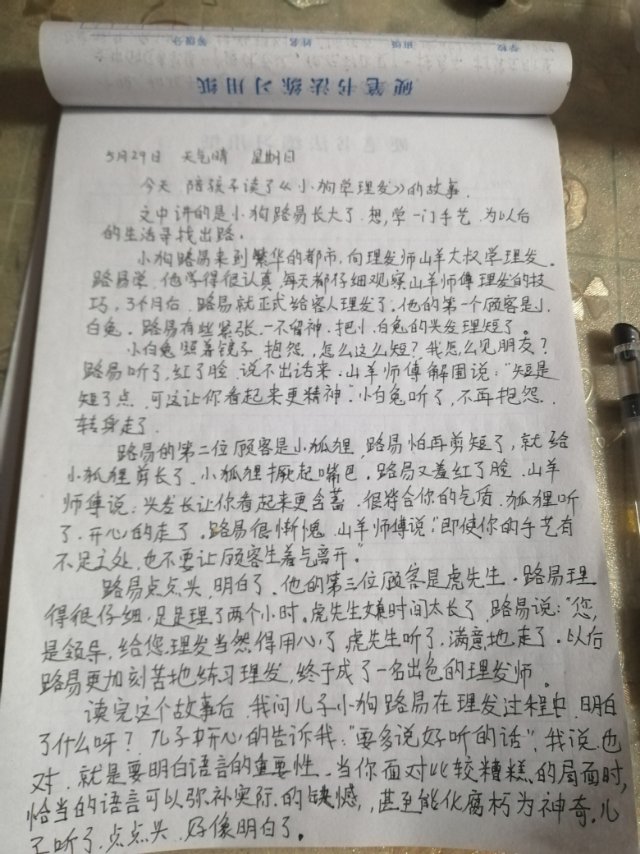 学校 班级 姓名 等级分
硬笔书法练习用纸
5月29日 天气晴 星期日
今天,陪孩子读了《小狗学理发》的故事.
文中讲的是小狗路易长大了.想,学一门手艺.为以后
的生活寻找出路。
小狗路易来到繁华的都市,向理发师山羊大叔学理发.
路易学.他学得很认真,每天都仔细观察山羊师傅理发的技
巧,3个月后.路易就正式给客人理发了。他的第一个顾客是小
白兔。路易有些紧张,一不留神.把小白兔的头发理短了。
小白兔照着镜子,抱怨.,怎么这么短?我怎么见朋友?
路易听了,红了脸.说不出话来.山羊师傅解围说:"短是
短了点.可这让你看起来更精神."小白兔听了,不再抱怨.
转身走了.
路易的第二位顾客是小狐狸,路易怕再剪短了,就给
小狐狸剪长了.小狐狸撅起嘴巴。路易又羞红了脸.山羊
师傅说:头发长让你看起来更含蓄.很符合你的气质.狐狸听
了.开心的走了.路易很惭愧.山羊师傅说:"即使你的手艺有
不足之处,也不要让顾客生着气离开"
路易点点头,明白了.他的第三位顾客是虎先生.路易理
得很仔细,足足理了两个小时。虎先生嫌时间太长了.路易说:"您,
是领导,给您理发当然得用心了.虎先生听了,满意地走了.以后
路易更加刻苦地练习理发,终于成了一名出色的理发师.
读完这个故事后.我问儿子小狗路易在理发过程中.明白
了什么呀?儿子开心的告诉我:"要多说好听的话",我说.也
对.就是要明白语言的重要性.当你面对比较糟糕的局面时,
恰当的语言可以弥补实际的缺憾,甚至能化腐朽为神奇.儿
子听了.点点头.好像明白了。